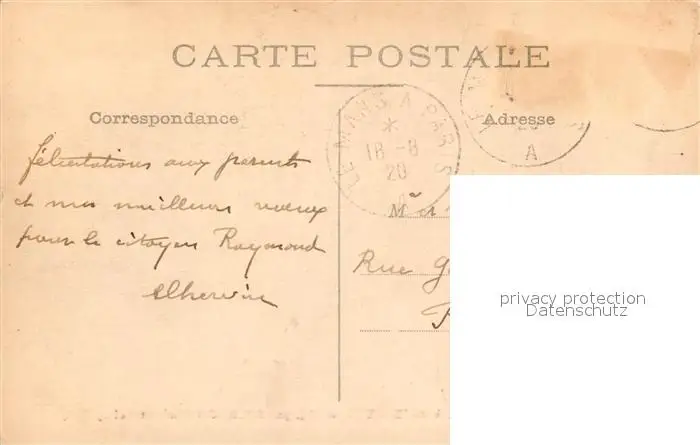 CARTE POSTALE
Correspondance
Adresse
LE MANS A PARIS
18-8
20
A
félicitations aux parents
et mes meilleurs voeux
pour le citoyen Raymond
Mr et
Rue
privacy protection
Datenschutz